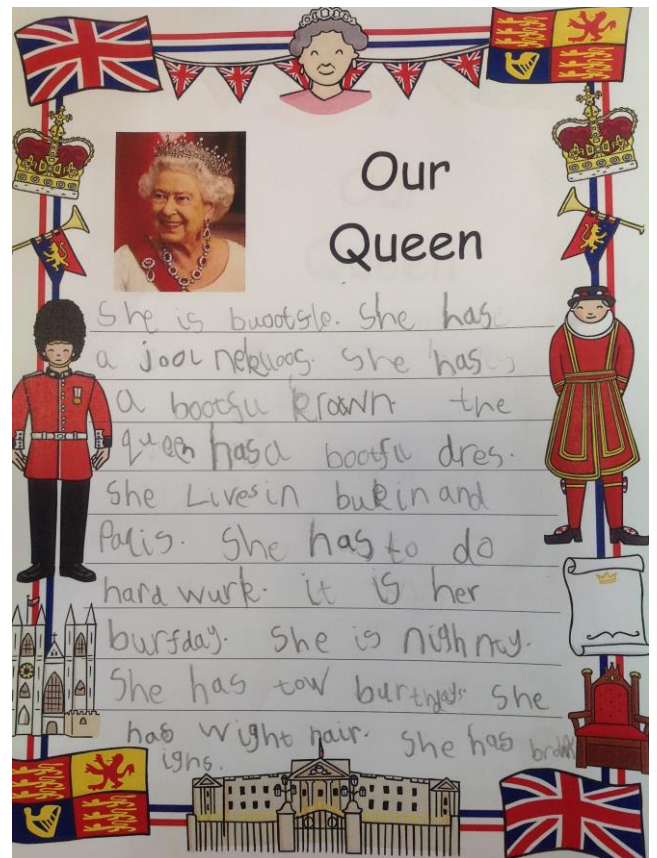 Our
Queen
She is buootsle. She has
a jool nekloos. She has
a bootfu krown. the
queen has a bootfu dres.
She Lives in bukin and
Palis. She has to do
hard wurk. it is her
burfday. She is nighnty.
She has tow burthdays She
has wight hair. She has
ighs.